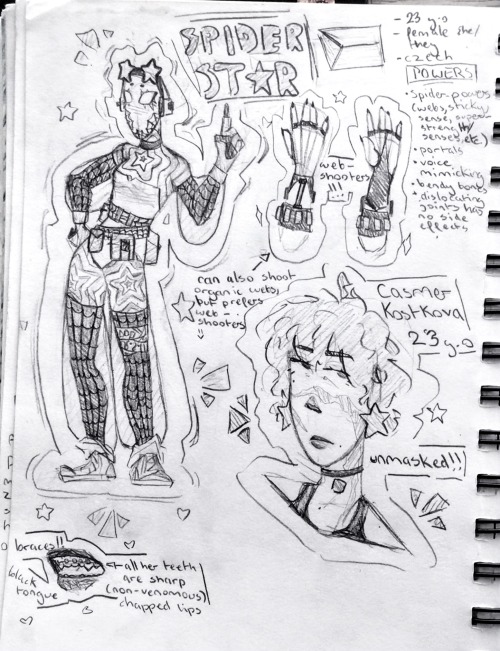 SPIDER
STAR
- 23 y.o
- female she/
they
- czech
POWERS
• Spider-powers
(webs, sticky
sense, super-
strength,
senses, etc)
• portals
• voice
mimicking
• bendy bones
+ dislocating
joints has
no side
effects
web-
shooters
!!!
can also shoot
organic webs,
but prefers
web-
shooters
:)
Casmer
Kostkova
23 y.o
unmasked!!
braces!!
black
tongue
+ all her teeth
are sharp
(non-venomous)
chapped lips